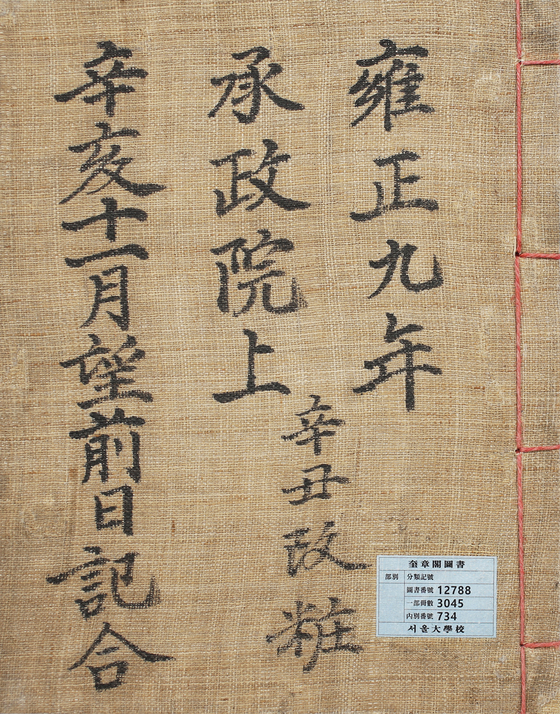 雍正九年
承政院上
辛丑改粧
辛亥十一月望前日記合
奎章閣圖書
部別 分類記號
圖書番號 12788
一部冊數 3045
內別番號 734
서울大學校